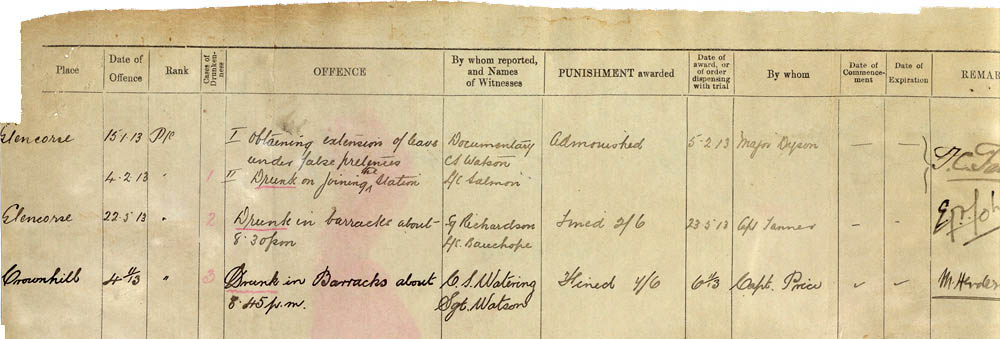 Place Date of Offence Rank Cases of Drunken-ness OFFENCE By whom reported, and Names of Witnesses PUNISHMENT awarded Date of award, or of order dispensing with trial By whom Date of Commence-ment Date of Expiration REMAR
Glencorse 15.1.13 Pte I Obtaining extension of leave Documentary Admonished 5.2.13 Major Dyson — —
under false pretences CS Watson
4.2.13 " 1 II Drunk on joining the Station L/c Salmon
Glencorse 22.5.13 " 2 Drunk in barracks about Sg Richardson Fined 2/6 23.5.13 Capt Tanner -
8.30pm L/c Bauchope
Crownhill 4/11/13 " 3 Drunk in Barracks about C.S. Watering Fined 7/6 6/11/13 Capt. Price
8.45 p.m. Sgt. Watson